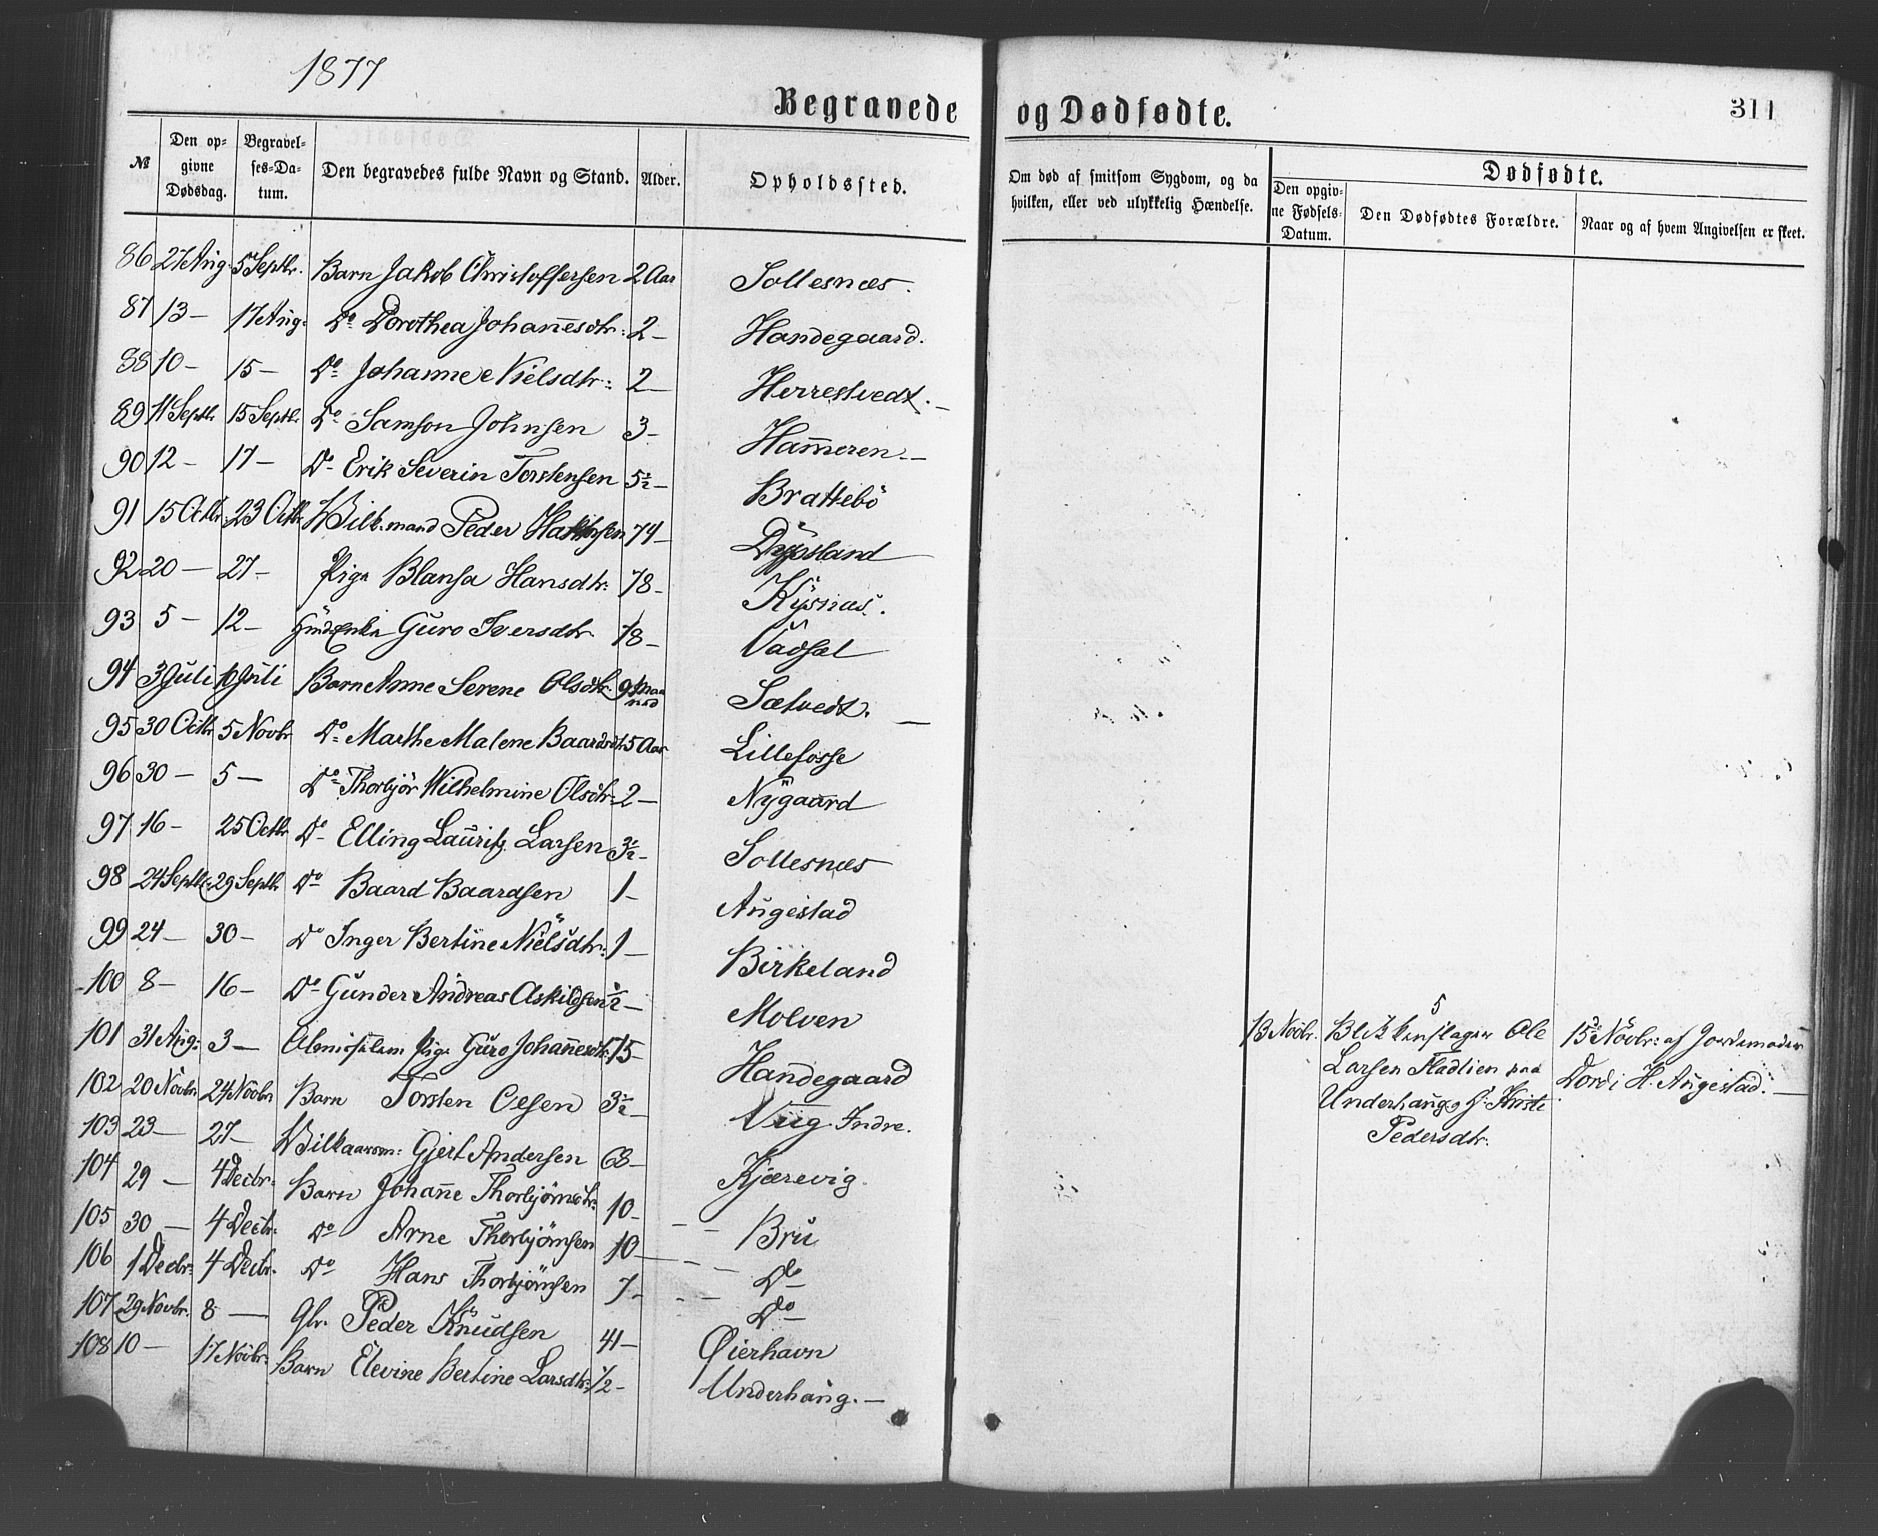 1877
Begravede og Dødfødte.
311
№
Den opgivne Dødsdag.
Begravelses-Datum.
Den begravedes fulde Navn og Stand.
Alder.
Opholdssted.
Om død af smitsom Sygdom, og da hvilken, eller ved ulykkelig Hændelse.
Dødfødte.
Den opgivne Fødsels-Datum.
Den Dødfødtes Forældre.
Naar og af hvem Angivelsen er skeet.
86 27 Aug. 5 Septbr. Barn Jakob Christoffersen 2 Aar Sollesnæs.
87 13 — 17 Aug. Do Dorothea Johannesdtr: 2 — Handegaard.
88 10 — 15 — Do Johanne Nielsdtr: 2 — Herrestvedt. —
89 11 Septbr 15 Septbr. Do Samson Johnsen 3 — Hammeren. —
90 12 — 17 — Do Erik Severin Torstensen 5½ — Brattebö
91 15 Octbr. 23 Octbr. Vilk.mand Peder 74 — Dypsland
92 20 — 27 — Pige Blansa Hansdtr: 78 — Kysnæs.
93 5 — 12 — Enke Guro Iversdtr 78 — Vadsel
94 3 Juli Juli Barn Anne Serene Olsdtr. 9 Maaned Sætvedt. —
95 30 Octbr 5 Novbr Do Marthe Malene Baardsdtr. 5 Aar Lillefosse
96 30 — 5 — Do Thorbjör Wilhelmine Olsdtr: 2 — Nygaard
97 16 — 25 Octbr Do Elling Lauritz Larsen 3½ — Sollesnæs
98 24 Septbr: 29 Septbr Do Baard Baardsen 1 — Augestad
99 24 — 30 — Do Inger Bertine Nielsdtr: 1 — Birkeland
100 8 — 16 — Do Gunder Andreas Askildsen ½ — Molven
101 31 Aug: 3 — Almisselem Pige Guro Johannesdtr: 75 — Handegaard
102 20 Novbr 24 Novbr Barn Torsten Oesen 3½ — Viig Indre.
103 23 — 27 — Vilkaarsm: Gjert Andersen 68 — Kjærevig
104 29 — 4 Decbr: Barn Johanne Thorbjörnsdtr: 10 — Bru
105 30 — 4 Decbr: Do Arne Thorbjörnsen 10 — Do
106 1 Decbr: 4 Decbr. Do Hans Thorbjörnsen 7 — Do
107 29 Novbr. 8 — Gbr. Peder Knudsen 41 — Øierhavn
108 10 — 17 Novbr: Barn Elevine Bertine Larsdtr: ½ — Underhaug. —
5
13 Novbr. Blikkenslager Ole 15de Novbr: af Jordemoder
Larsen Fladlien paa Dordi H. Augestad. —
Underhaug og H. Kristi
Pedersdtr.